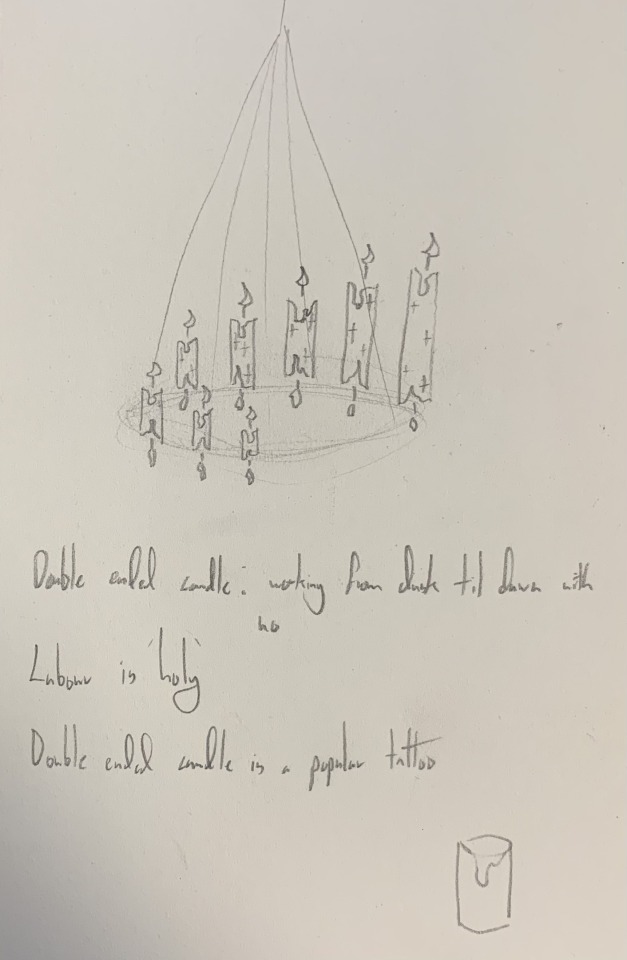 Double ended candle: working from dusk til dawn with
no
Labour is 'holy'
Double ended candle is a popular tattoo